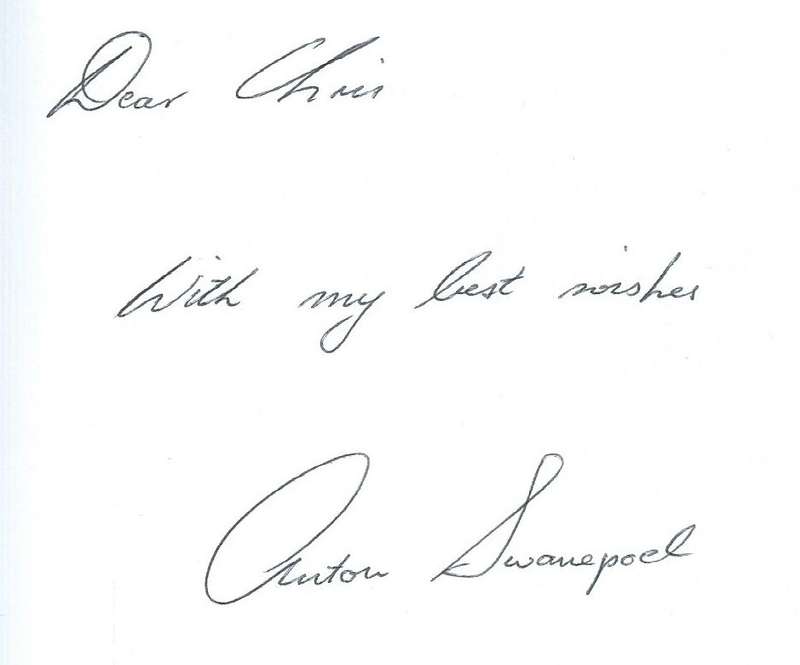 Dear Chris
With my best wishes
Anton Swanepoel